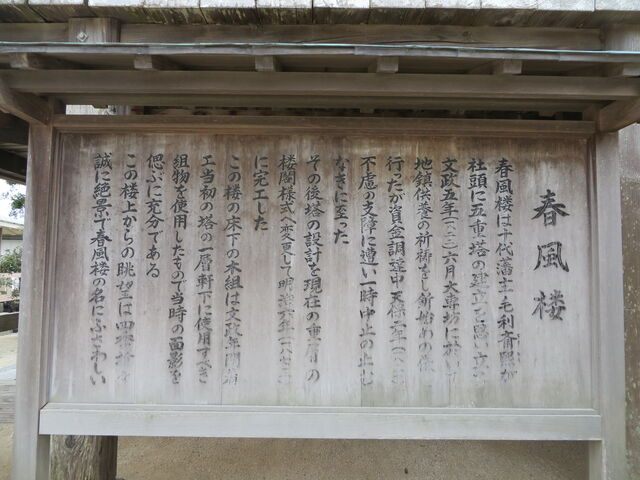 春風楼
春風楼は十代藩主毛利斉熙が
社頭に五重塔の建立を思い立ち
文政五年(一八二二)六月大専坊に於いて
地鎮供養の祈祷をし釿始めの儀
行ったが資金調達中天保二年(一八三一
不慮の支障に遭い一時中止の止む
なきに至った
その後塔の設計を現在の重層の
楼閣様式へ変更して明治六年(一八七三)
に完工した
この楼の床下の木組は文政年間着
工当初の塔の一層軒下に使用すべき
組物を使用したもので当時の面影を
偲ぶに充分である
この楼上からの眺望は四季
誠に絶景で春風楼の名にふさわしい